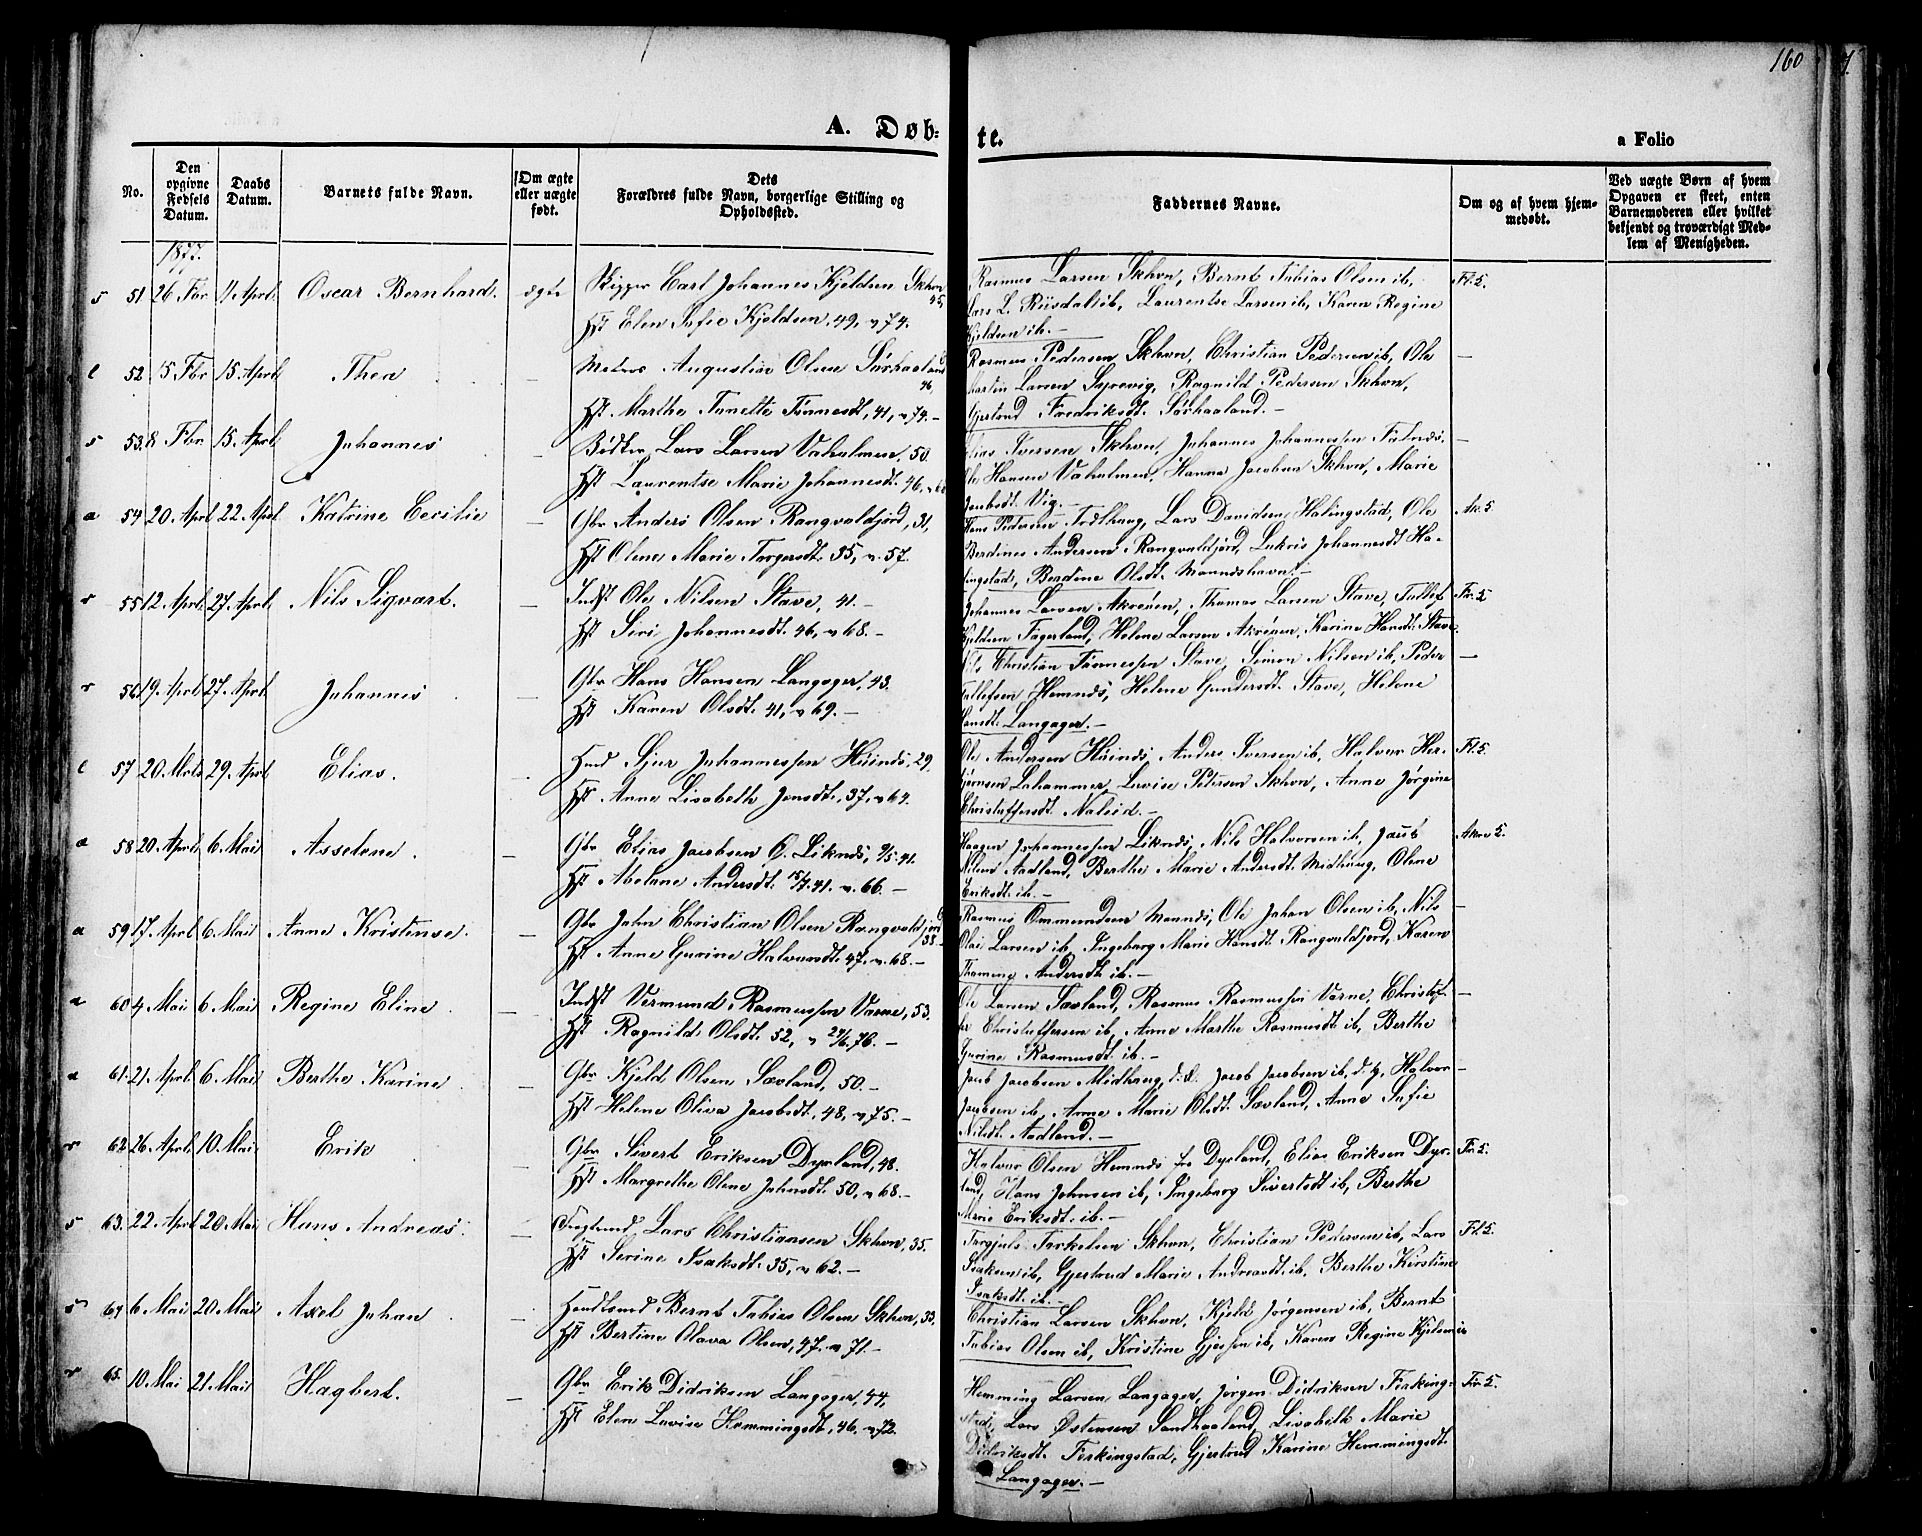 160
A. Døb-
te.
a Folio
No.
Den opgivne Fødsels Datum.
Daabs Datum.
Barnets fulde Navn.
Om ægte eller uægte født.
Dets Forældres fulde Navn, borgerlige Stilling og Opholdssted.
Faddernes Navne.
Om og af hvem hjemmedøbt.
Ved uægte Børn af hvem Opgaven er skeet, enten Barnemoderen eller hvilket bekjendt og troværdigt Medlem af Menigheden.
1877.
s 51 26 Fbr April Oscar Bernhard. ægte Skipper Carl Johannes Kjeldsen Skhvn 45,
Hst Elen Sofie Kjeldsen, 49, v 74.
Rasmus Larsen Skhvn, Bernt Tobias Olsen ib, Fl. 5.
Lars L. Riisdal ib, Laurentse Larsen ib, Karen Regine
Kjeldsen ib. –
l 52 15 Fbr 15 April Thea – Augustin Olsen Sørhaaland 46,
Hst Marthe Tunette Tønnesdt, 41, v 74. –
Rasmus Pedersen Skhvn, Christian Pedersen ib, Ole –
Martin Larsen Syrevig, Ragnild Pedersen Skhvn,
Gjertrud Fredriksdt. Sørhaaland. –
s 53 8 Fbr 15 April Johannes – Bødker Lars Larsen Vaholmen, 50.
Hst Laurentse Marie Johannesdt. 46,
Elias Iversen Skhvn, Johannes Johannessen –
Ole Hansen Vaholmen, Hanna Jacobsen Skhvn, Marie
Jacobsdt. Vig. –
a 54 20 April 22 April Katrine Cecilie – Gbr Anders Olsen Rangvaldjord, 31,
Hst Olene Marie Torgersdt. 35, v. 57.
Hans Pedersen Lars Davidsen Halingstad, Ole Ak. 5
Berdines Andersen Rangvaldjord, Lukris Johannesdt Ha-
lingstad, Berdine Olsdt. Munkshavn. –
r 55 12 April 27 April Nils Sigvart. – Indst Ole Nilsen Stave, 41. –
Hst Siri Johannesdt. 46, v 68. –
Johannes Larsen Akrønen, Thomas Larsen Stave, Tollef Fr. 5
Kjeldsen Fagerland, Helene Larsen Akrønen, Karine Hansdt. Stave.
r 56 19 April 27 April Johannes – Gbr Hans Hansen Langager, 43.
Hst Karen Olsdt. 41, v 69. –
Nils Christian Tønnessen Stave, Simon Nilsen ib, Peder –
Tollefsen Hemnæs, Helene Gundersdt. Stave, Helene
Hansdt. Langager. –
l 57 20 Mrts 29 April Elias. Hmd Sjur Johannessen Høinæs, 29.
Hst Anne Lisabeth Jonsdt. 37, v 64.
Ole Andersen Høinæs, Anders Iversen ib, Halvor Her- Fl. 5.
bjørnsen Lahammer, Lovise Petersen Skhvn, Anne Jørgine
Christoffersdt. Naleid. –
a 58 20 April 6 Mai Asselene. – Gbr Elias Jacobsen Ø. Liknæs, 9/5. 41.
Hst Abelone Andersdt. 15/7. 41. v. 66. –
Haagen Johannessen Liknæs, Nils Halvorsen ib, Jacob Akre 5.
Nilsen Aadland, Berthe Marie Andersdt. Midhaug, Olene
Eriksdt. ib. –
a 59 17 April 6 Mai Anne Kristense. – Gbr John Christian Olsen Rangvaldjord 38. –
Hst Anne Gurine Halvorsdt. 47. v. 68. –
Rasmus Ommundsen Munnæs, Ole Johan Olsen ib, Nils –
Olai Larsen ib, Ingeborg Marie Hansdt. Rangvaldjord, Karen
Thomine Andersdt. ib. –
a 60 4 Mai 6 Mai Regine Eline – Indst Vermund Rasmussen Varne, 53.
Hst Ragnild Olsdt. 52, v 24/6. 76. –
Ole Larsen Sævland, Rasmus Rasmussen Varne, Christof- –
fer Christoffersen ib, Anne Marthe Rasmusdt. ib, Berthe
Gurine Rasmusdt ib. –
a 61 21 April 6 Mai Berthe Karine – Gbr Kjeld Olsen Sævland, 50. –
Hst Helene Oliva Jacobsdt. 48, v 75. –
Jacob Jacobsen Midhaug, d. æ. Jacob Jacobsen ib, d. y, Halvor –
Jacobsen ib, Anne Marie Olsdt. Sævland, Anne Sofie
Nilsdt. Aadland. –
r 62 26 April 10 Mai Erik – Gbr Sivert Eriksen Dyrland, 48.
Hst Margrethe Olene Johnsdt. 50, v 68. –
Halvor Olsen Hemnæs fra Dyrland, Elias Eriksen Dyr- Fr. 5.
land, Hans Johnsen ib, Ingeborg Sivertsdt ib, Berthe
Marie Eriksdt. ib. –
s 63. 22 April 20 Mai Hans Andreas. – Lars Christiansen Skhvn, 35.
Hst Serine Isaksdt. 35, v 62. –
Torgjuls Torkelsen Skhvn, Christian Pedersen ib, Lars Fl. 5.
Isaksen ib, Gjertrud Marie Andreasdt. ib. Berthe Kirstine
Isaksdt. ib. –
s 64 6 Mai 20 Mai Axel Johan – Handlsmd Bernt Tobias Olsen Skhvn, 33.
Hst Bertine Olava Olsen, 47. v 71. –
Christian Larsen Skhvn, Kjeld Jørgensen ib, Bernt
Tobias Olsen ib, Kristine Gjessen ib, Karen Regine Kjelsen ib
r 65. 10 Mai 21 Mai Hagbert. – Gbr Erik Didriksen Langager, 44,
Hst Elen Lovise Hemmingsdt, 46. v 72.
Hemming Larsen Langager, Jørgen Didriksen Ferking- Fr. 5.
stad, Lars Østensen Sandhaaland, Lisabeth Marie
Didriksdt. Ferkingstad, Gjertrud Karine Hemmingsdt.
Langager. –